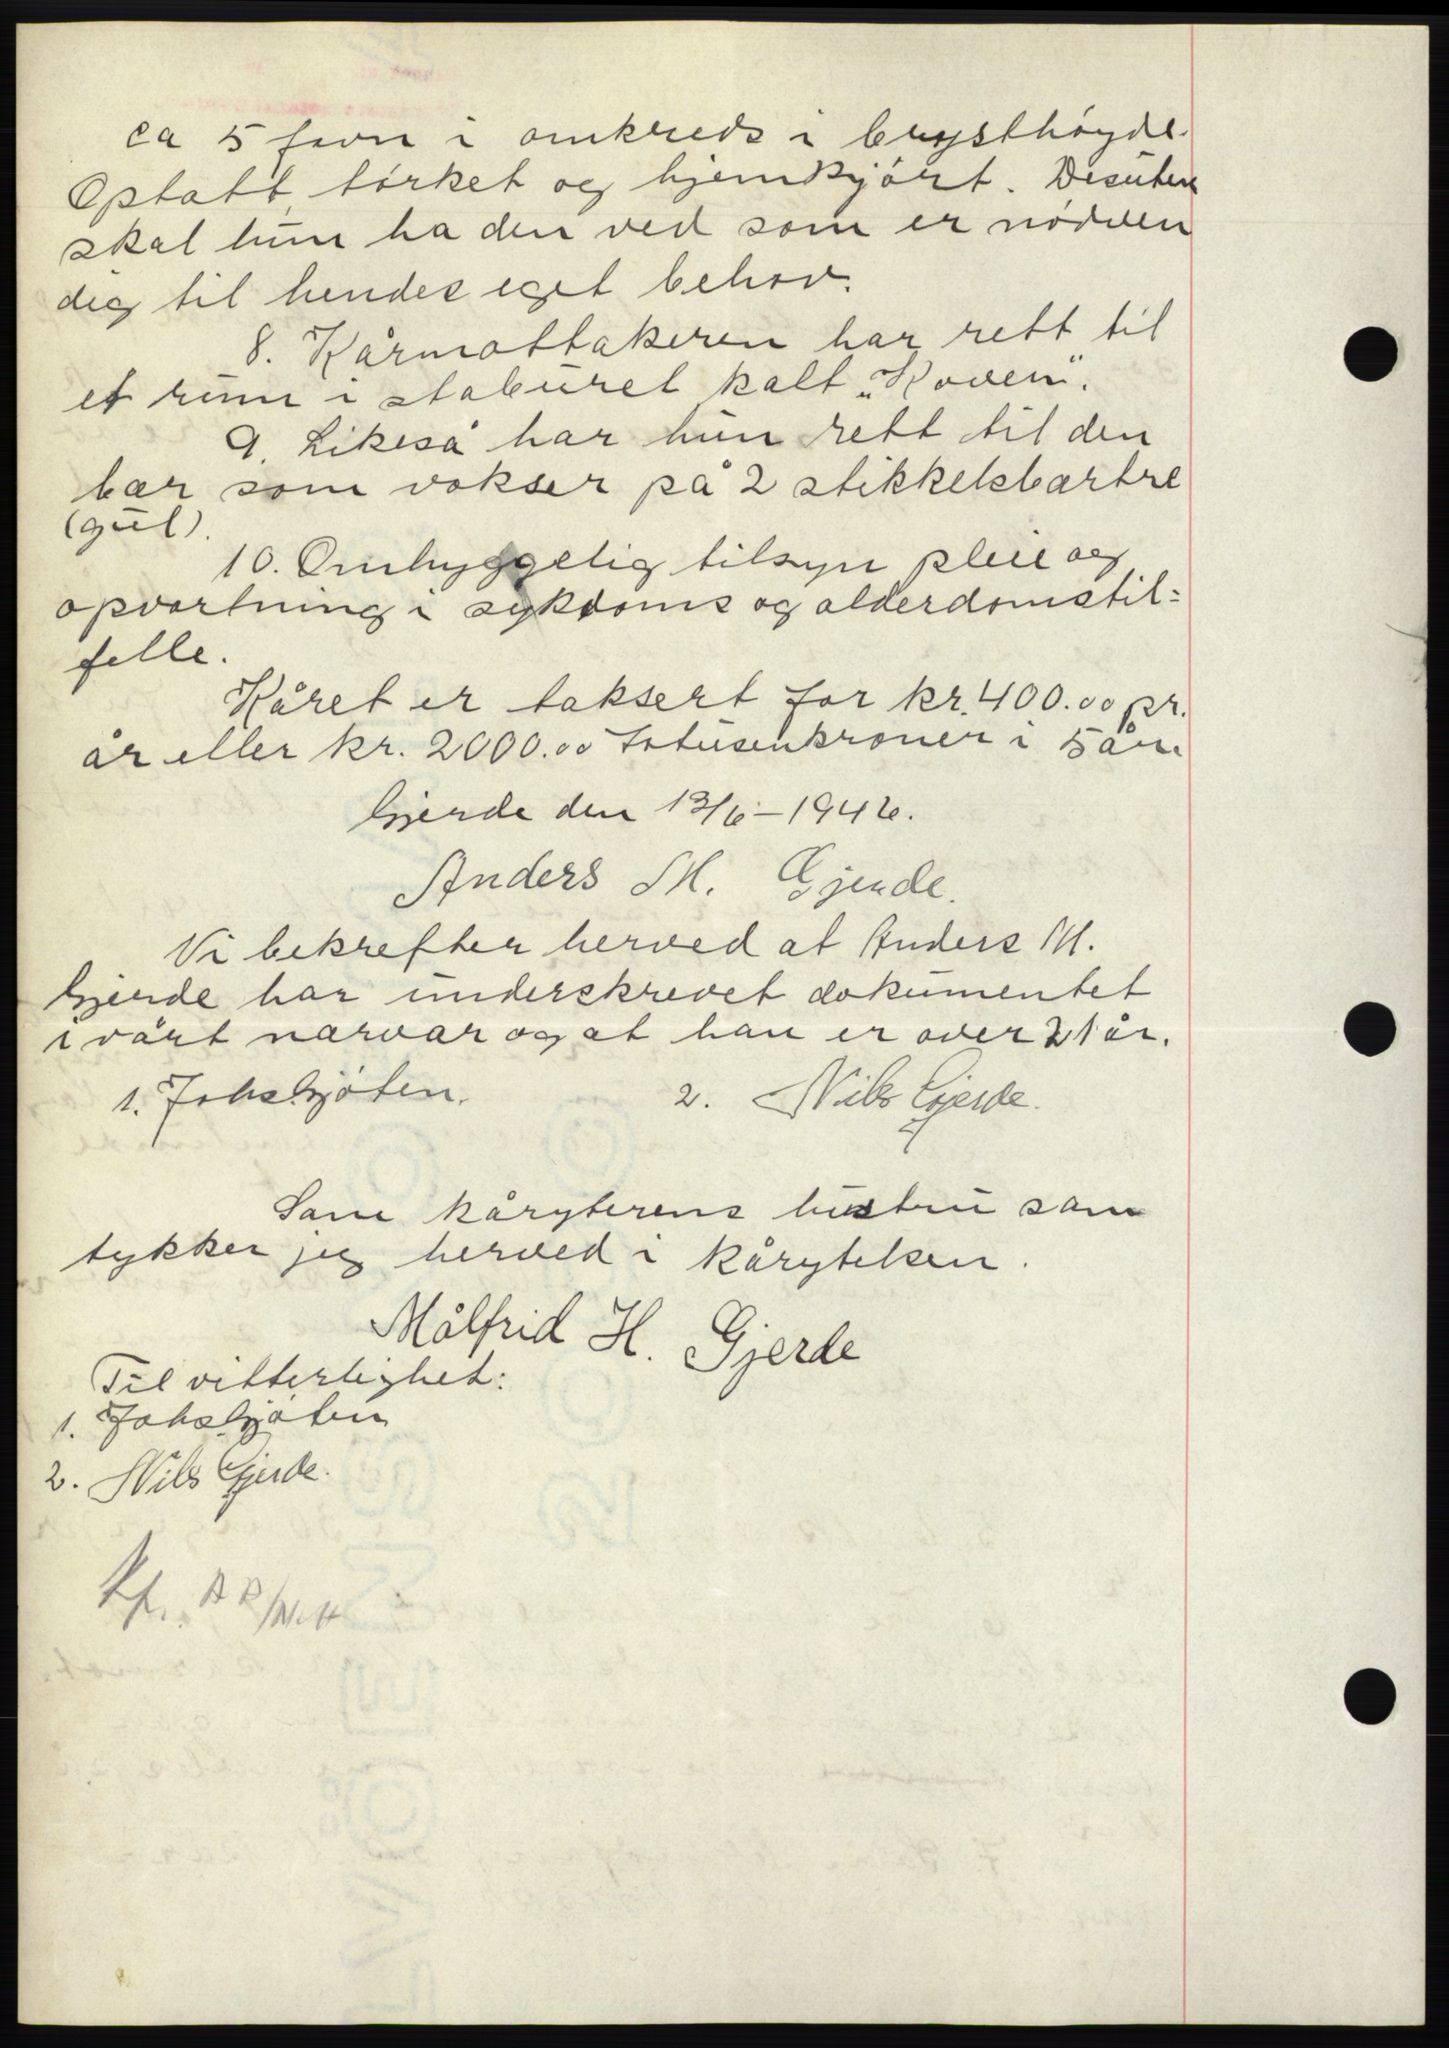 ca 5 favn i omkreds i brysthøyde.
Optatt, tørket og hjemkjørt. Desuten
skal hun ha den ved som er nødven
dig til hendes eget behov.
8. Kårmottakeren har rett til
et rum i staburet kalt „Koven".
9. Likeså har hun rett til den
bær som vokser på 2 stikkelsbærtre
(gul).
10. Omhyggelig tilsyn pleie og
opvartning i sykdoms og alderdomstil=
felle.
Kåret er taksert for kr. 400.00 pr.
år eller kr. 2000.00 totusenkroner i 5 år.
Gjerde den 13/6-1946.
Anders M. Gjerde.
Vi bekrefter herved at Anders M.
Gjerde har underskrevet dokumentet
i vårt nærvær og at han er over 21 år.
1. Johs Gjøten. 2. Nils Gjerde.
Som kåryterens hustru sam
tykker jeg herved i kårytelsen.
Målfrid H. Gjerde
Til vitterlighet:
1. Johs Gjøten
2. Nils Gjerde.